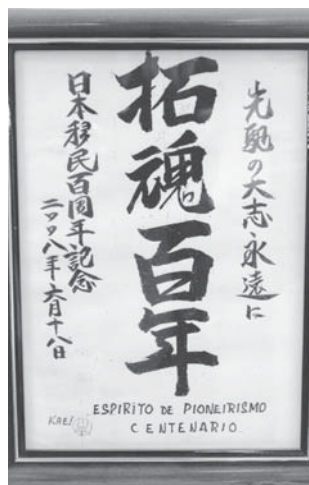 先駆の大志永遠に
拓魂百年
日本移民百周年記念
二〇〇八年六月十八日
ESPIRITO DE PIONEIRISMO
CENTENARIO.
KAEI